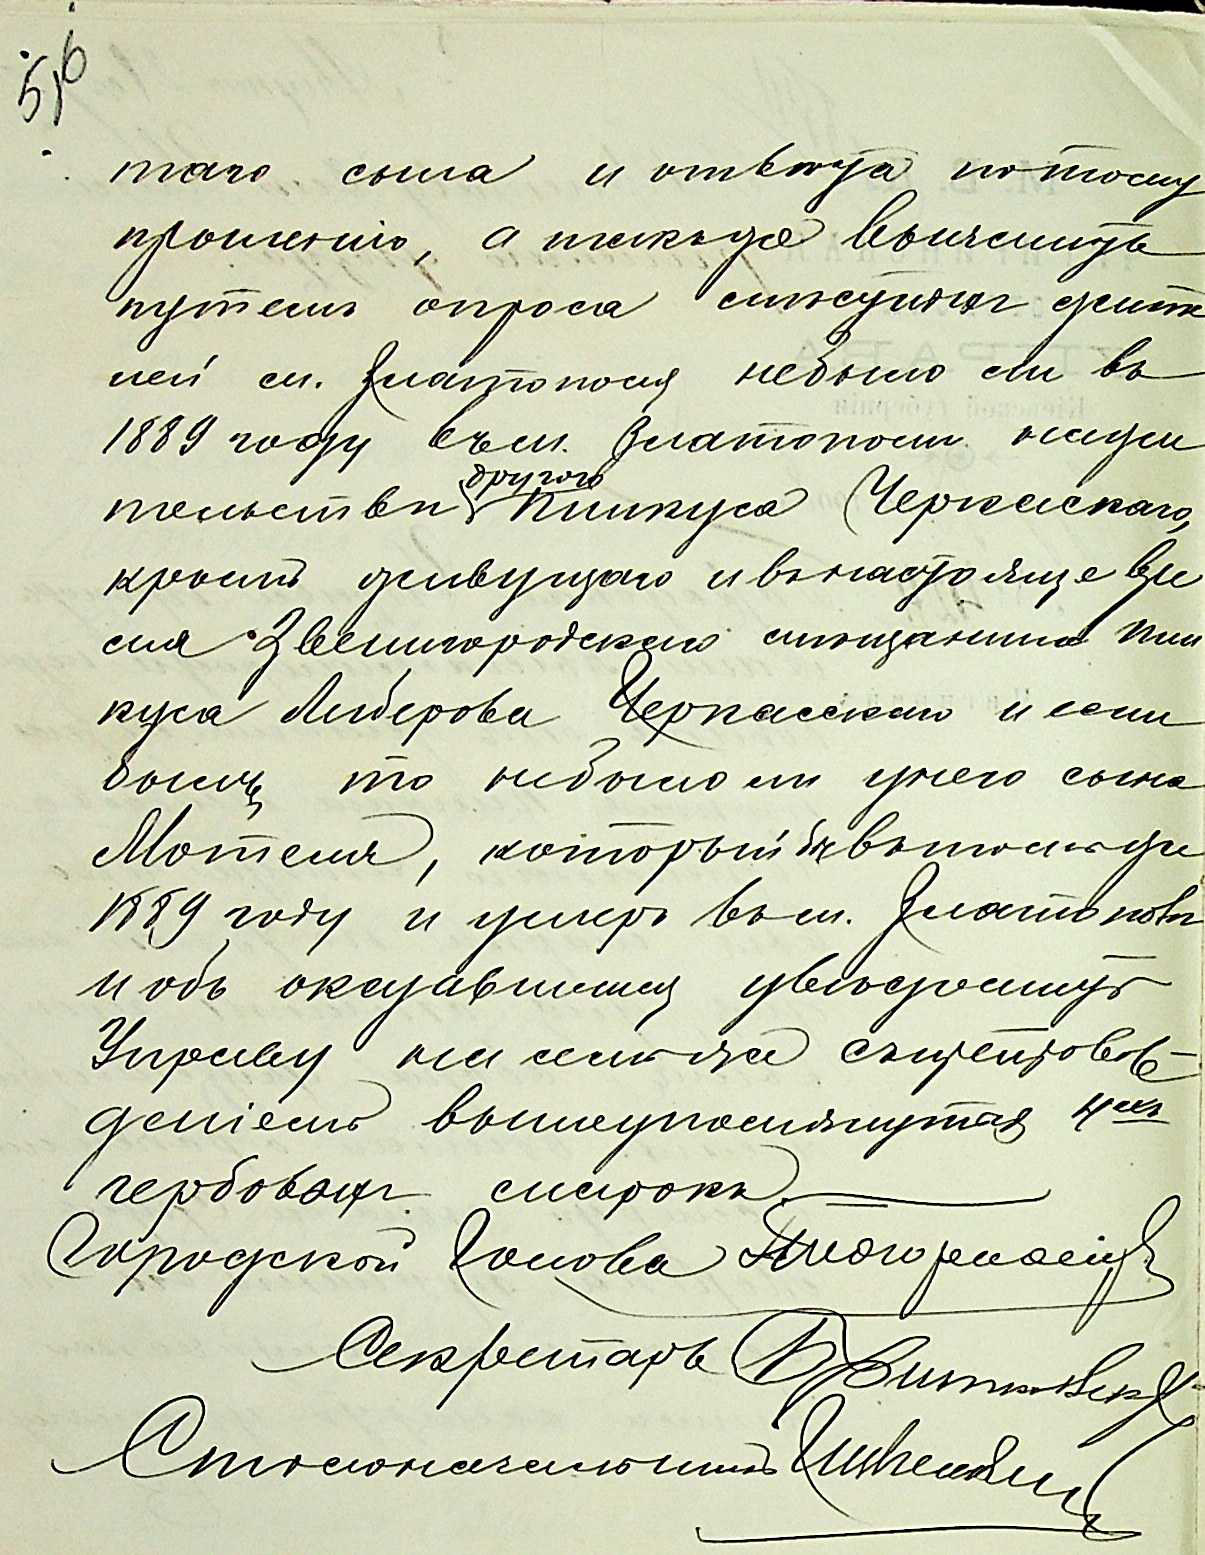 516
таго сына и отвѣта по тому
прошенію, а также выяснить
путемъ опроса мѣстныхъ жите
лей м. Златополя небыло ли въ
1889 году въ м. Златополи на жи
тельствѣ другого Пинкуса Черкаскаго,
кромѣ живущаго и въ настоящее вре
мя Звенигородскаго мѣщанина Пин
куса Либерова Черкасскаго и если
былъ, то небыло ли у него сына
Мотеля, который бы въ томъ же
1889 году и умеръ въ м. Златополи
и объ оказавшемся увѣдомить
Управу на семъ же съ препровож-
деніемъ вышеупомянутыхъ 4хъ
гербовыхъ марокъ.
Городской Голова
Секретарь
Столоначальникъ